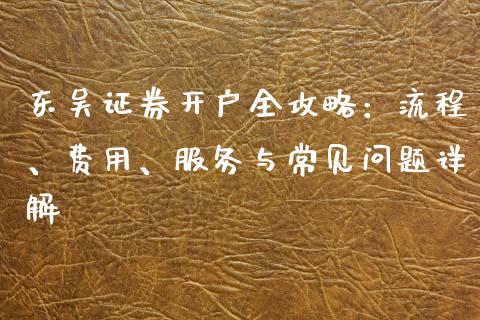 东吴证券开户全攻略：流程
、费用、服务与常见问题详
解